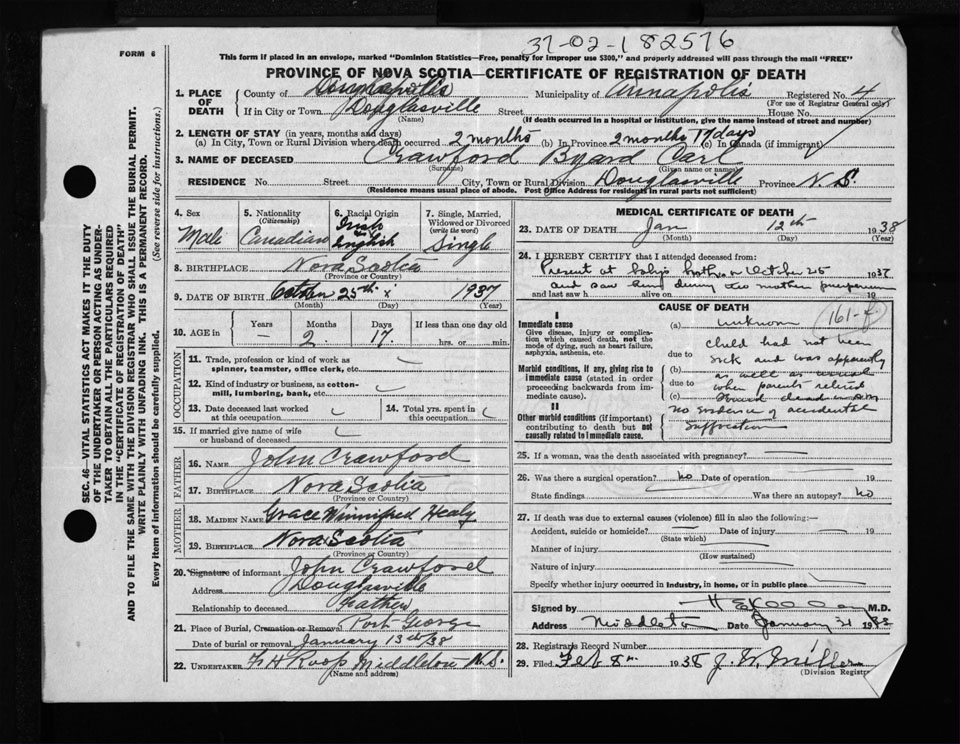 FORM 6
37-02-182576
This form if placed in an envelope, marked "Dominion Statistics—Free, penalty for improper use $300," and properly addressed will pass through the mail "FREE"
PROVINCE OF NOVA SCOTIA—CERTIFICATE OF REGISTRATION OF DEATH
SEC. 46—VITAL STATISTICS ACT MAKES IT THE DUTY
OF THE UNDERTAKER OR PERSON ACTING AS UNDER-
TAKER TO OBTAIN ALL THE PARTICULARS REQUIRED
IN THE "CERTIFICATE OF REGISTRATION OF DEATH"
AND TO FILE THE SAME WITH THE DIVISION REGISTRAR WHO SHALL ISSUE THE BURIAL PERMIT.
WRITE PLAINLY WITH UNFADING INK. THIS IS A PERMANENT RECORD.
Every item of information should be carefully supplied. (See reverse side for instructions.)
1. PLACE OF DEATH County of Annapolis Municipality of Annapolis Registered No. 4
(For use of Registrar General only)
If in City or Town Douglasville Street House No.
(Name) (If death occurred in a hospital or institution, give the name instead of street and number)
2. LENGTH OF STAY (in years, months and days)
(a) In City, Town or Rural Division where death occurred 2 months (b) In Province 2 months 17 days (c) In Canada (if immigrant)
3. NAME OF DECEASED Crawford Byard Carl
(Surname) (Given name or names)
RESIDENCE No. Street City, Town or Rural Division Douglasville Province N.S.
(Residence means usual place of abode. Post Office Address for residents in rural parts not sufficient)
4. Sex Male
5. Nationality (Citizenship) Canadian
6. Racial Origin Irish & English
7. Single, Married, Widowed or Divorced (write the word) Single
8. BIRTHPLACE Nova Scotia
(Province or Country)
9. DATE OF BIRTH October 25th 1937
(Month) (Day) (Year)
10. AGE in Years – Months 2 Days 17 If less than one day old hrs. or min.
OCCUPATION
11. Trade, profession or kind of work as spinner, teamster, office clerk, etc.
12. Kind of industry or business, as cotton-mill, lumbering, bank, etc.
13. Date deceased last worked at this occupation
14. Total yrs. spent in this occupation
15. If married give name of wife or husband of deceased
FATHER
16. Name John Crawford
17. Birthplace Nova Scotia
(Province or Country)
MOTHER
18. Maiden Name Grace Winnifred Healy
19. Birthplace Nova Scotia
(Province or Country)
20. Signature of informant John Crawford
Address Douglasville
Relationship to deceased Father
21. Place of Burial, Cremation or Removal Port George
Date of burial or removal January 13th/38
22. UNDERTAKER F H Roop Middleton N.S.
(Name and address)
MEDICAL CERTIFICATE OF DEATH
23. DATE OF DEATH Jan 12th 1938
(Month) (Day) (Year)
24. I HEREBY CERTIFY that I attended deceased from:
Present at baby's birth on October 25 1937
and saw him during the mother puerperium
and last saw h alive on 19
CAUSE OF DEATH
161-f
I
Immediate cause
Give disease, injury or complication which caused death, not the mode of dying, such as heart failure, asphyxia, asthenia, etc.
Morbid conditions, if any, giving rise to immediate cause (stated in order proceeding backwards from immediate cause).
II
Other morbid conditions (if important) contributing to death but not causally related to immediate cause.
(a) unknown
child had not been
due to sick and was apparently
(b) as well as usual
due to when parents retired
(c) found dead in
No evidence of accidental
suffocation
25. If a woman, was the death associated with pregnancy?
26. Was there a surgical operation? No Date of operation 19
State findings Was there an autopsy? No
27. If death was due to external causes (violence) fill in also the following:—
Accident, suicide or homicide? Date of injury 19
(State which)
Manner of injury
(How sustained)
Nature of injury
Specify whether injury occurred in Industry, in home, or in public place
Signed by M.D.
Address Middleton Date January 31 1938
28. Registrars Record Number
29. Filed Feb 8th 1938 J. W. Miller
(Division Registrar)